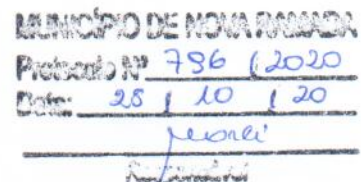 MUNICÍPIO DE NOVA RAMADA
Protocolo Nº 796 / 2020
Data: 28 / 10 / 20
Responsável